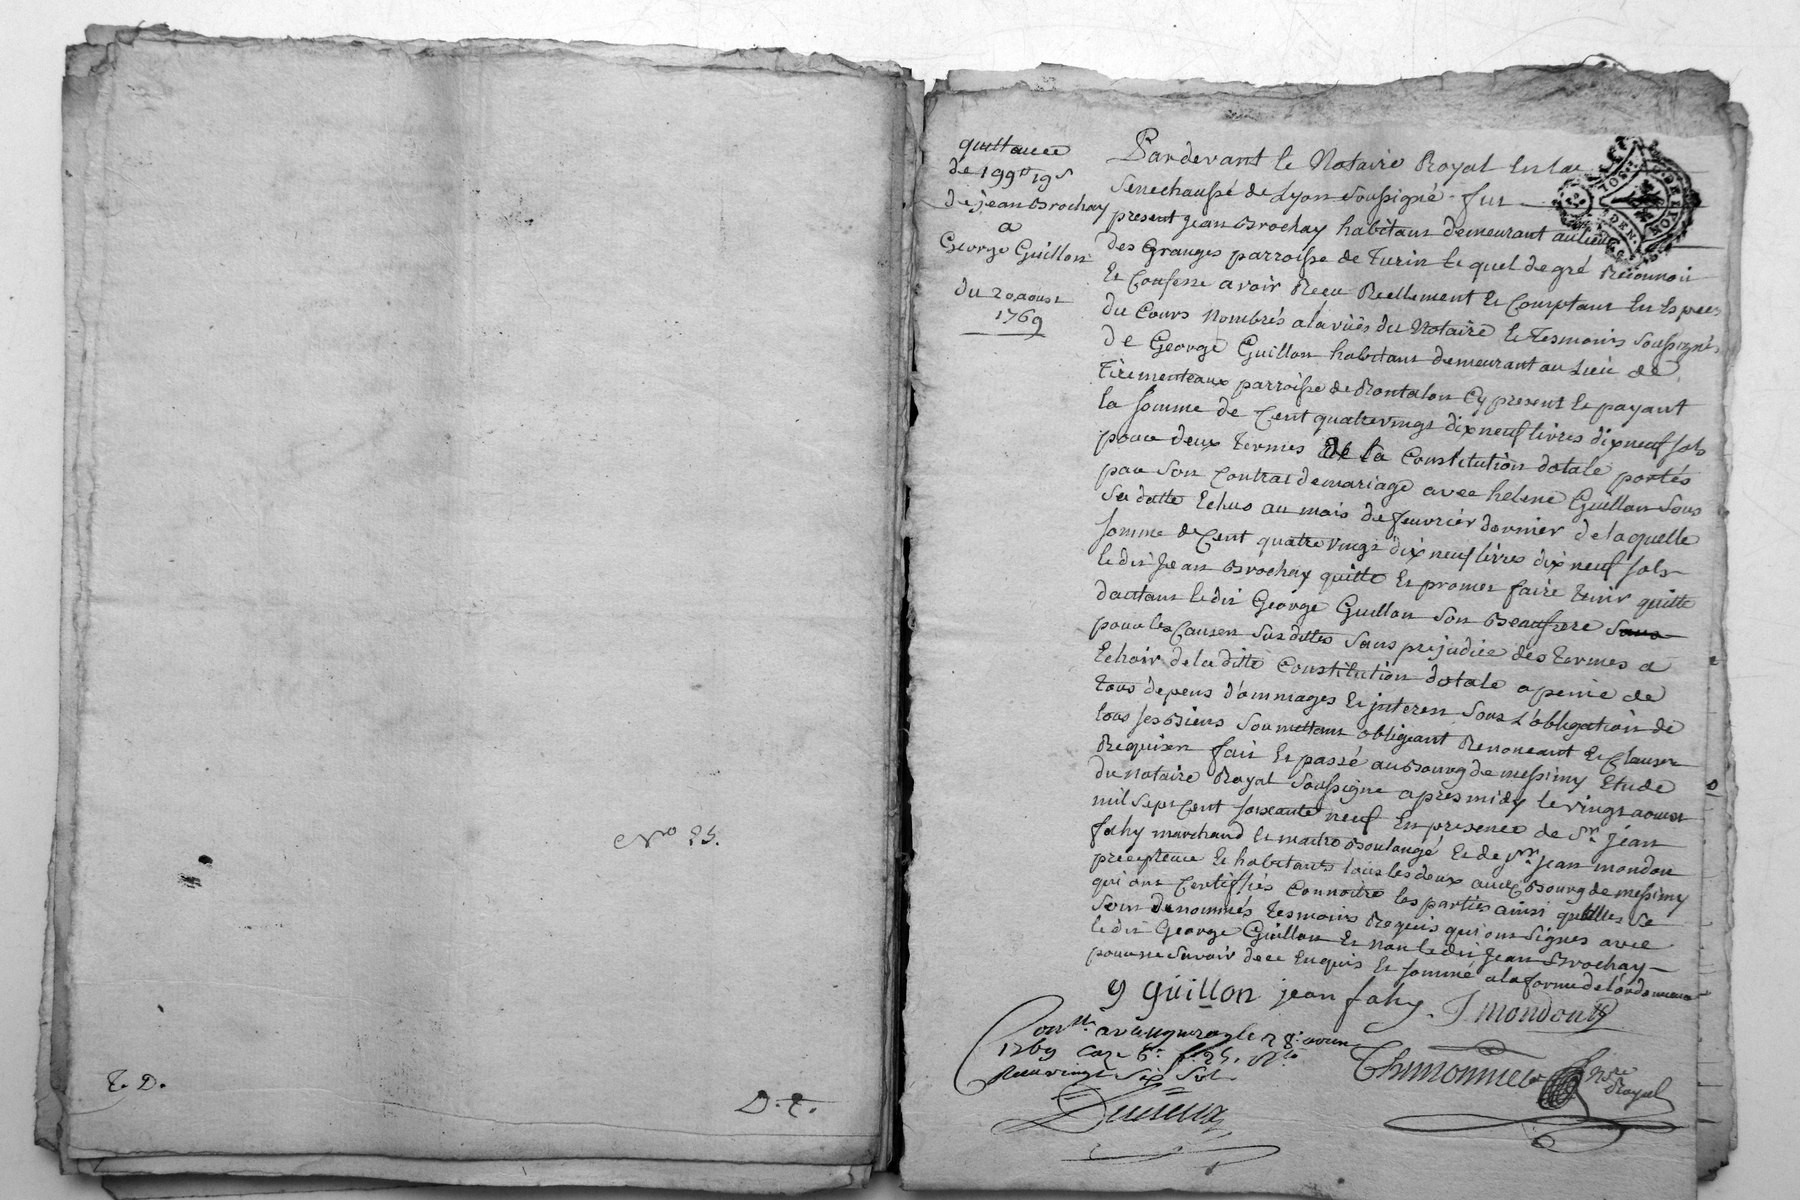 No 25.
T. D.
D. T.
quittance
de 199ᵗᵗ 19ˢ
de jean Brochay
a
George Guillon
du 20 aoust
1769
Pardevant le Notaire Royal en la
Senechaussé de Lyon soussigné fut
present jean Brochay habitant demeurant au lieu
des Granges parroisse de Turin le quel de gré Reconnoit
et Confesse avoir Receu Reellement et Comptant en Especes
du Cours Nombrés a la vüe du Notaire et tesmoins soussignés
de George Guillon habitant demeurant au Lieu de
Tirementeaux parroisse de Rontalon Cy present et payant
la somme de Cent quattre vingt dix neuf livres dix neuf sols
pour deux termes de la Constitution dotale portés
par son Contrat de mariage avec helene Guillon sous
sa datte Echus au mois de feuvrier dernier de laquelle
somme de Cent quatre vingt dix neuf livres dix neuf sols
le dit Jean Brochay quitte et promet faire tenir quitte
dautant le dit George Guillon son Beaufrere
pour les Causes sus dittes sans prejudice des termes a
Echoir de la ditte Constitution dotale a peine de
tous depens d'ommages et jnterest sous L'obligation de
tous ses Biens soumettant obligeant Renonceant et Clauses
Requises fait et passé au Bourg de messimy Etude
du notaire Royal soussigne apres midy le vingt aoust
mil sept Cent soixante neuf En presence de Sʳ. jean
fahy marchand et maitre Boulangé et de Sʳ. jean mondon
precepteur et habitants tous les deux audit Bourg de messimy
qui ont Certiffiés Connoitre les parties ainsi quelles se
sont denommés tesmoins Requis qui ont signés avec
le dit George Guillon et non le dit Jean Brochay
pour ne savoir de ce Enquis et sommé a la forme de l'ordonnance
g guillon jean fahy. J mondon
Conˡˡᵉ a le 28 aoust
1769 Caze 6ᵉ fᵒ 25. Rᵗᵒ
vingt six sols
Thimonnier Nʳᵉ Royal